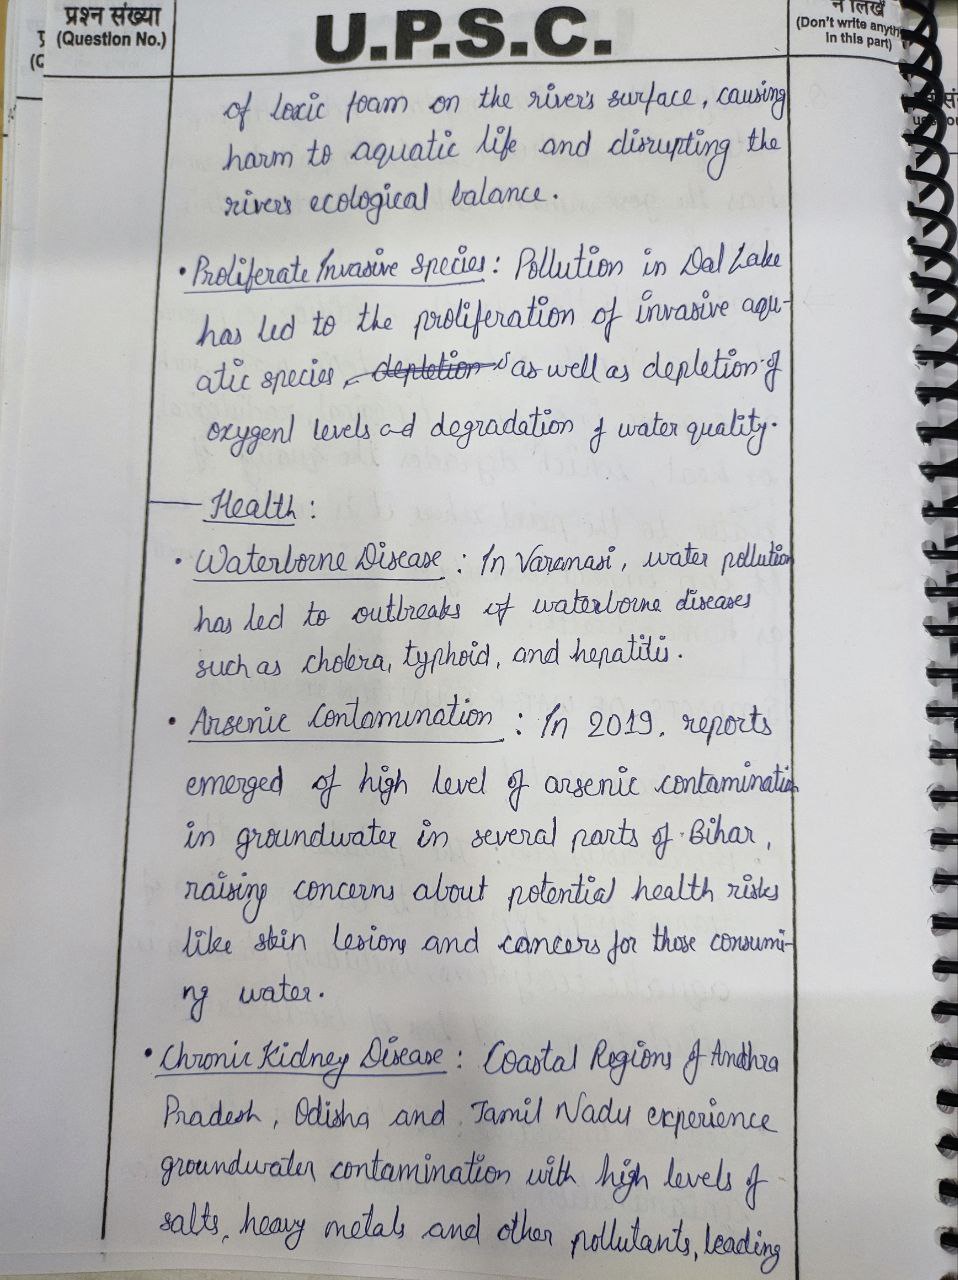 प्रश्न संख्या
(Question No.)
U.P.S.C.
न लिखें
(Don't write anyth
in this part)
of toxic foam on the river's surface, causing
harm to aquatic life and disrupting the
river's ecological balance.
• Proliferate Invasive Species: Pollution in Dal Lake
has led to the proliferation of invasive aqu-
atic species, depletion as well as depletion of
oxygenl levels ad degradation of water quality.
Health:
• Waterborne Disease : In Varanasi, water pollution
has led to outbreaks of waterborne diseases
such as cholera, typhoid, and hepatitis.
• Arsenic Contamination : In 2019, reports
emerged of high level of arsenic contamination
in groundwater in several parts of Bihar,
raising concerns about potential health risks
like skin lesions and cancers for those consumi-
ng water.
• Chronic Kidney Disease : Coastal Regions of Andhra
Pradesh, Odisha and Tamil Nadu experience
groundwater contamination with high levels of
salts, heavy metals and other pollutants, leading